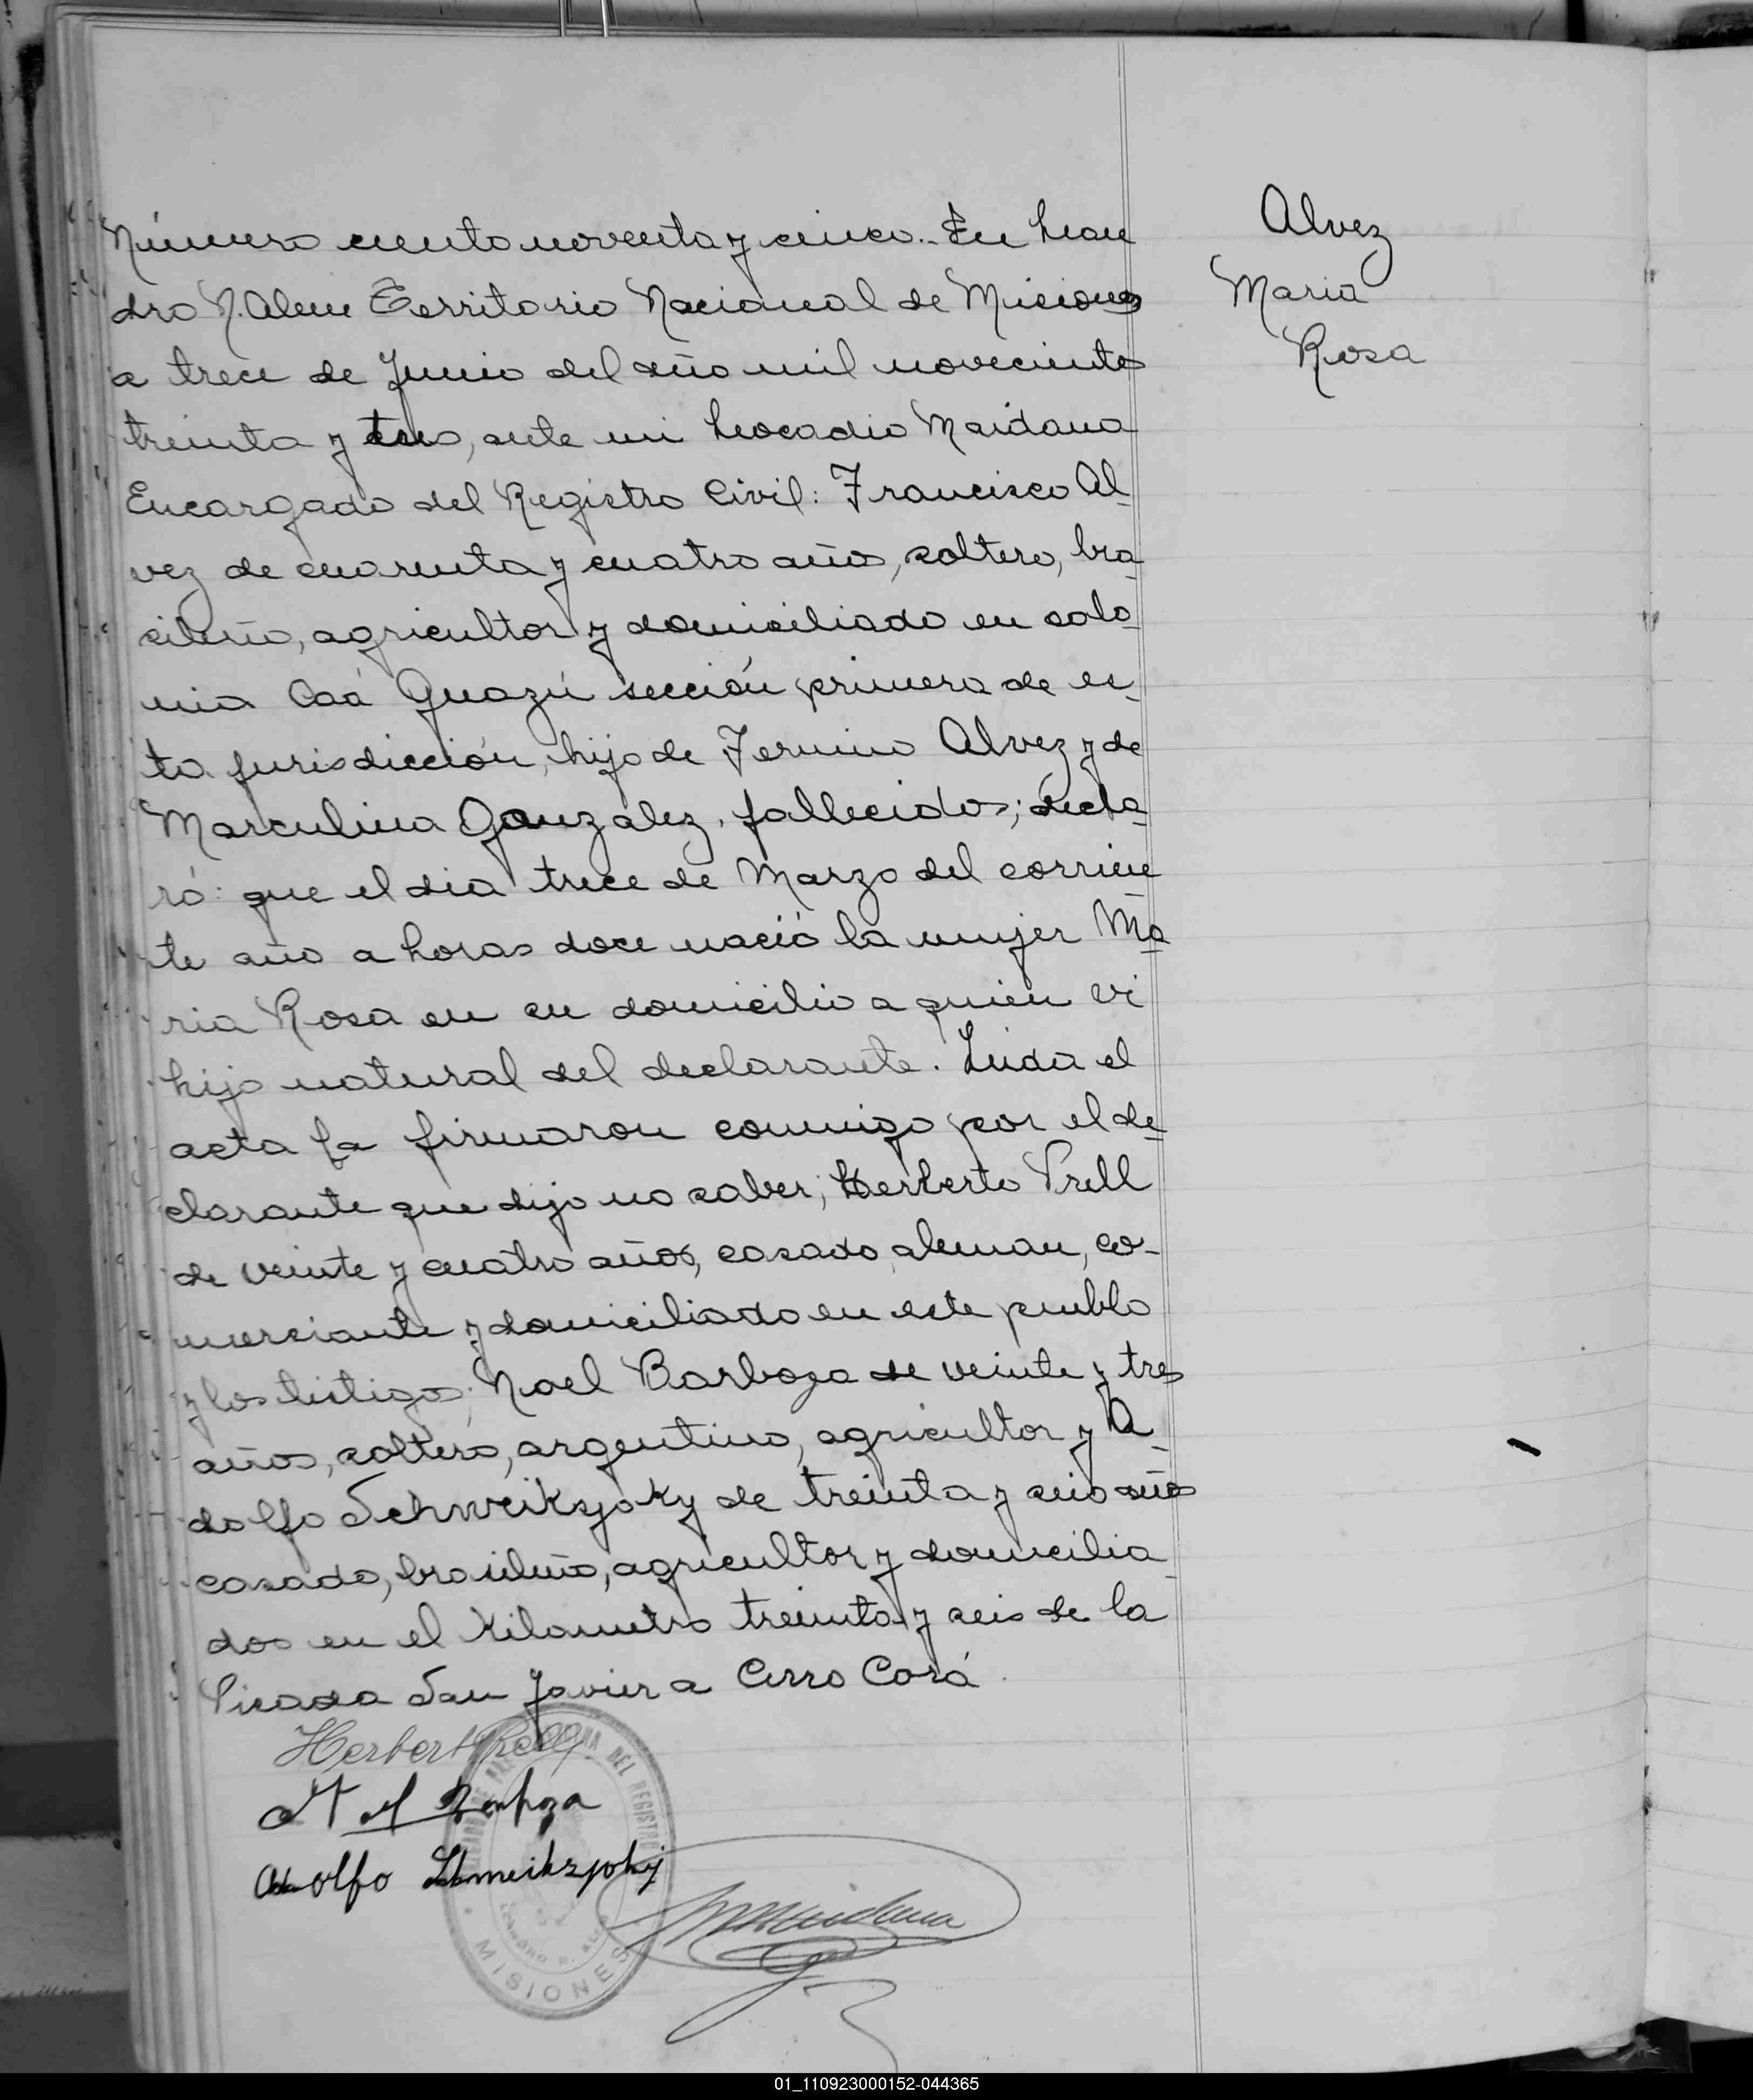 Número ciento noventa y cinco.. En Lean
dro N. Alem Territorio Nacional de Misiones
a trece de Junio del año mil novecientos
treinta y tres, ante mi Leocadio Maidana
Encargado del Registro Civil: Francisco Al
vez de cuarenta y cuatro años, soltero, bra
sileño, agricultor y domiciliado en colo
nia Caá Guazú sección primera de es
ta jurisdicción, hijo de Fermino Alvez y de
Marculina Gonzalez, fallecidos; decla
ró: que el dia trece de Marzo del corrien
te año a horas doce nació la mujer Ma
ria Rosa en su domicilio a quien vi
hijo natural del declarante. Leida el
acta la firmaron conmigo por el de
clarante que dijo no saber; Herberto Prell
de veinte y cuatro años, casado, aleman, co-
merciante y domiciliado en este pueblo
y los testigos: Noel Barboza de veinte y tres
años, soltero, argentino, agricultor y A
dolfo Schweikzjoky de treinta y seis años
casado, brasileño, agricultor y domicilia
dos en el Kilometro treinta y seis de la
Picada San Javier a Cerro Corá.
Alvez
Maria
Rosa
Herbert Prell
Adolfo
Maidana
DEL REGISTRO
MISIONES
01_110923000152-044365